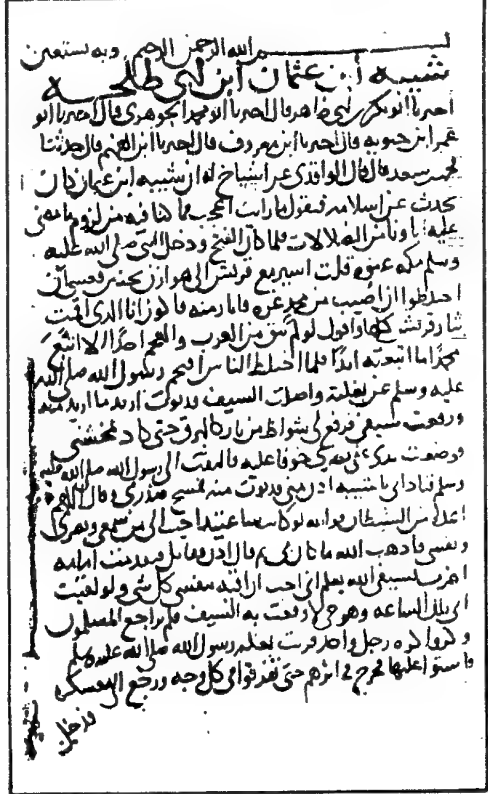 بسم الله الرحمن الرحيم وبه نستعين
شيبة أبن عثمان ابن ابي طلحه
اخبرنا ابو بكر ابي طاهر قال اخبرنا ابو محمد الجوهري قال اخبرنا ابو
عمر ابن حيويه قال اخبرنا ابن معروف قال اخبرنا ابن الفهم قال حدثنا
محمد سعد قال قال الواقدي عن اشياخ له ان شيبه ابن عثمان كان
يحدث عن اسلامه فيقول ما رايت اعجب مما كنا فيه من لزوم ما مضى
عليه اباونا من الضلالات فلما كان الفتح ودخل النبي صلى الله عليه
وسلم مكه عنوه قلت اسير مع قريش الى هوازن بحنين فعسى ان
اختلطوا ان اصيب من محمد غره فاثار منه فاكون انا الذي اقمت
بثار قريش كلها واقول لو لم يبق من العرب والعجم احدا الا اتبع
محمدا ما اتبعته ابدا فلما اختلط الناس اقتحم رسول الله صلى الله
عليه وسلم عن بغلته واصلت السيف ودنوت اريد ما اريد منه
ورفعت سيفي فرفع لي شواظ من نار كالبرق حتى كاد يمحشني
ووضعت يدي على بصري خوفا عليه فالتفت الى رسول الله صلى الله عليه
وسلم فنادى يا شيبه ادن مني فدنوت منه فمسح صدري وقال اللهم
اعذه من الشيطان فوالله لهو كان ساعتيذ احب الي من سمعي وبصري
ونفسي فاذهب الله ما كان بي ثم قال ادن فقاتل فتقدمت امامه
اضرب بسيفي الله يعلم اني احب ان اقيه بنفسي كل شي ولو لقيت
ابي تلك الساعه وهو حي لاوقعت به السيف فلم تراجع المسلمون
وكروا كره رجل واحد قربت بغله رسول الله صلى الله عليه وسلم
فاستوا عليها فخرج في اثرهم حتى تفرقوا في كل وجه ورجع الى معسكره
فدخل